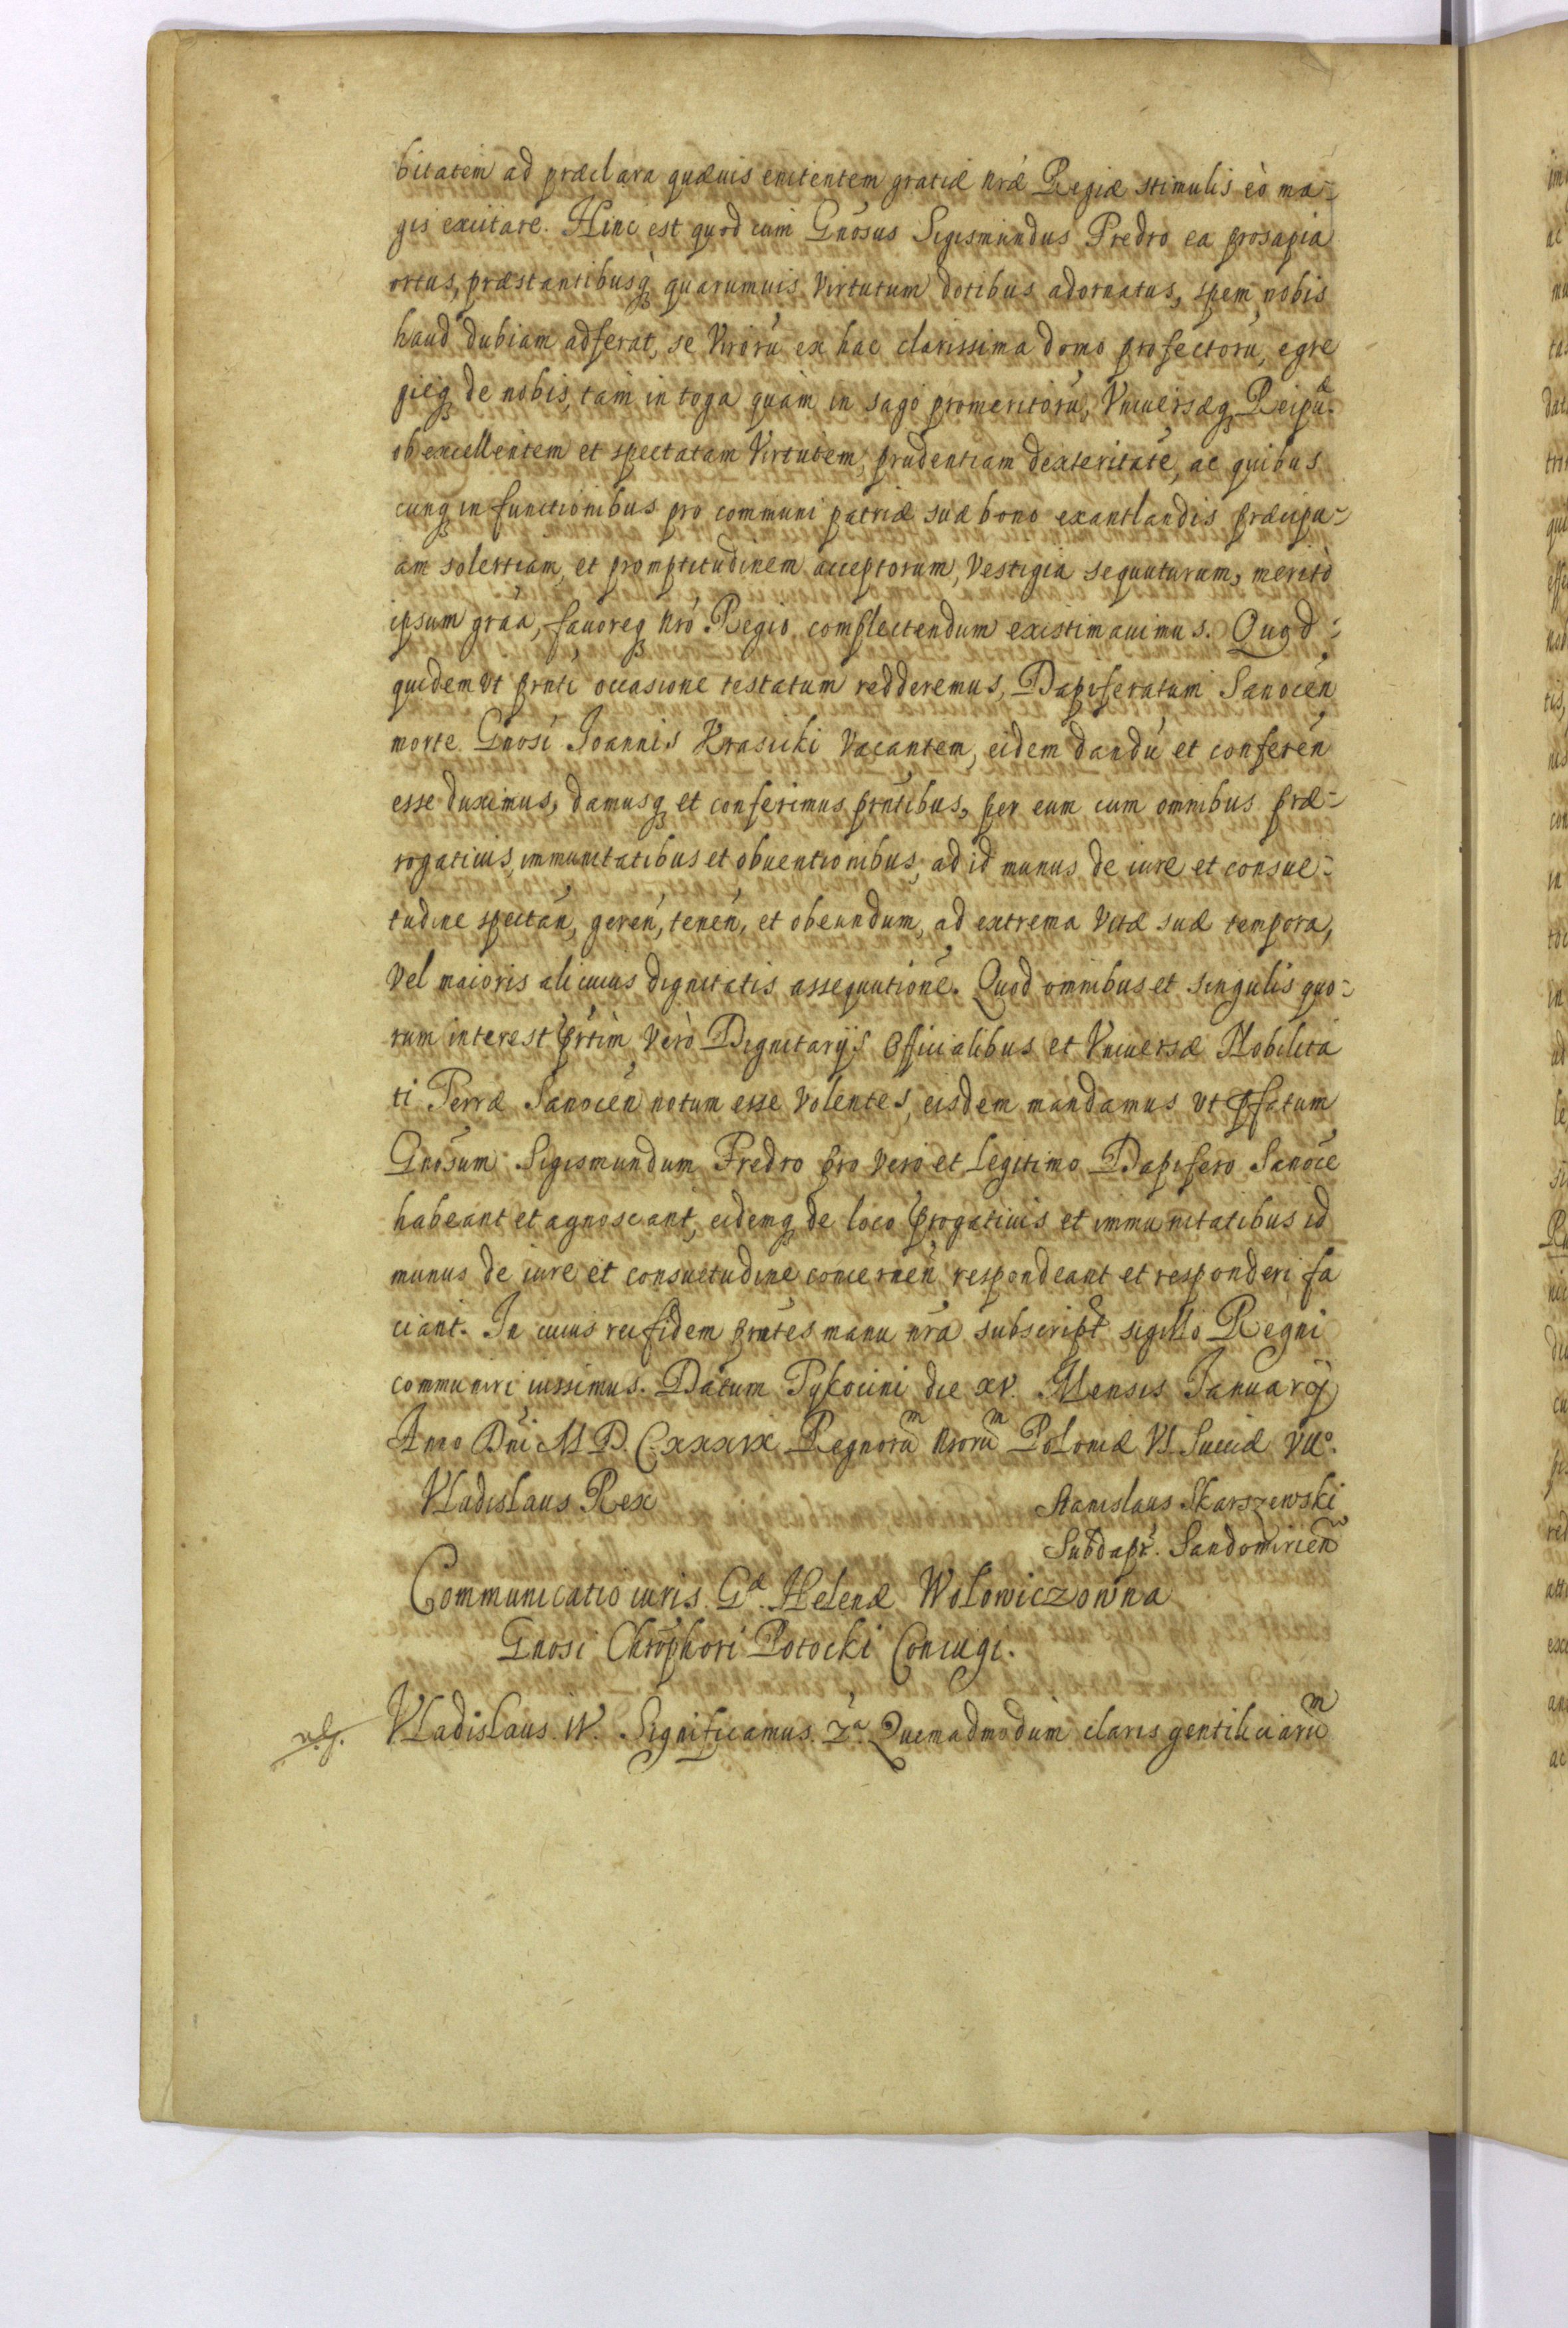 bitatem ad præclara quæuis enitentem gratiæ nræ Regiæ stimulis eò ma-
gis excitare. Hinc est quod cum Gnosus Sigismundus Fredro ea prosapia
ortus, præstantibusq quarumuis Virtutum dotibus adornatus, spem nobis
haud dubiam adferat, se Virorũ ex hac clarissima domo profectorũ, egre
gieq de nobis, tam in toga quàm in sago promeritorũ, Vniuersæq Reipu.
ob excellentem et spectatam Virtutem, prudentiam dexteritatẽ, ac quibus
cunq in functionibus pro communi patriæ suæ bono exantlandis præcipu-
am solertiam, et promptitudinem acceptorum, Vestigia sequuturum, meritò
ipsum graa, fauoreq nrò Regio complectendum existimauimus. Quod-
quidem Vt prnti occasione testatum redderemus, Dapiferatum Sanocen
morte Gnosi Joannis Krasicki Vacantem, eidem dandũ et conferen
esse duximus, damusq et conferimus prntibus, per eum cum omnibus præ-
rogatiuis, immunitatibus et obuentionibus, ad id munus de iure et consue-
tudine spectan, geren, tenen, et obeundum, ad extrema Vitæ suæ tempora,
Vel maioris alicuius dignitatis assequutionẽ. Quod omnibus et singulis quo-
rum interest prtim Verò Dignitarijs Officialibus et Vniuersæ Nobilita
ti Terræ Sanocen notum esse Volentes, eisdem mandamus Vt pfatum
Gnosum Sigismundum Fredro pro Vero et Legitimo Dapifero Sanocẽ
habeant et agnoscant, eidemq de loco progatiuis et immunitatibus id
munus de iure et consuetudine concernen respondeant et responderi fa
ciant. In cuius rei fidem prntes manu nra subscript sigillo Regni
communiri iussimus. Datum Tykocini die XV. Mensis Januarij
Anno Dni M D CXXXIX Regnorũm nrorũm Poloniæ VI Sueciæ VII°.
Vladislaus Rex Stanislaus Skarszewski
Subdapr. Sandomirien
Communicatio iuris. Gæ. Helenæ Wolowiczowna
Gnosi Chrophori Potocki Coniugi.
Vladislaus. IV. Significamus. Za. Quemadmodum claris gentiliciarũm